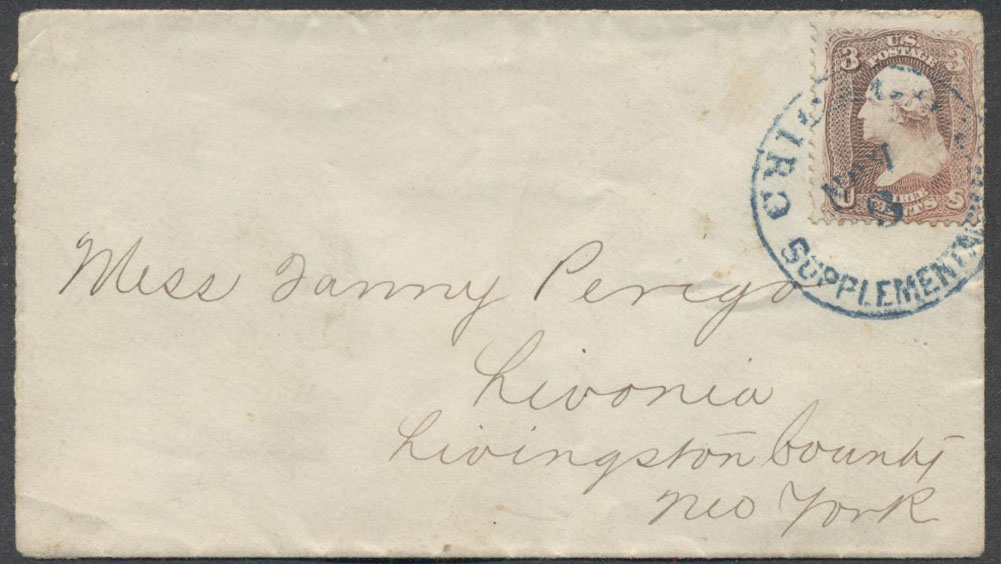 U.S.
POSTAGE
3 3
U S
CENTS
SUPPLEMENT
Miss Fanny Perigo
Livonia
Livingston County
New York